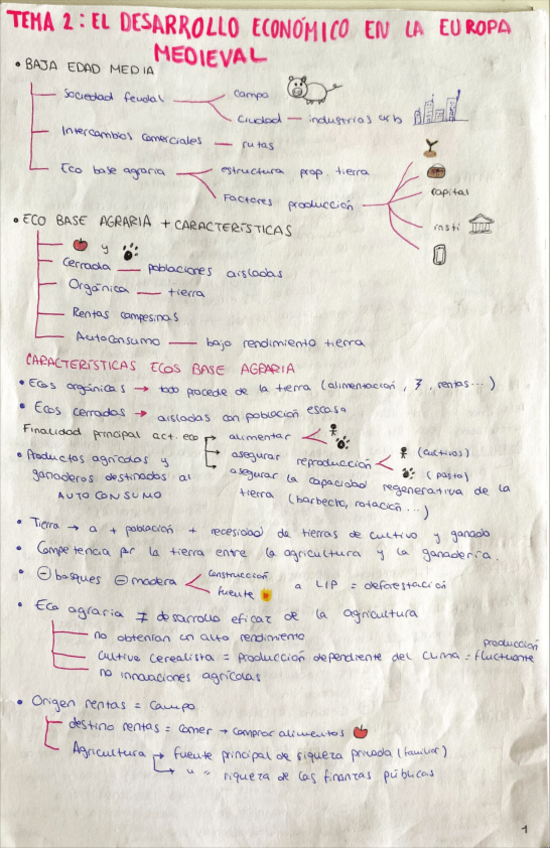 TEMA 2: EL DESARROLLO ECONÓMICO EN LA EUROPA
MEDIEVAL
• BAJA EDAD MEDIA
Sociedad feudal campo
ciudad — industrias urb
Intercambios comerciales — rutas
Eco base agraria estructura prop. tierra
Factores producción
capitas
insti
• ECO BASE AGRARIA + CARACTERÍSTICAS
y
Cerrada — poblaciones aisladas
Orgánica — tierra
Rentas campesinas
Autoconsumo — bajo rendimiento tierra
CARACTERÍSTICAS ECOS BASE AGRARIA
• Ecos orgánicas → todo procede de la tierra (alimentación, , rentas...)
• Ecos cerradas → aisladas con población escasa
Finalidad principal act. eco → alimentar
→ asegurar reproducción (cultivos)
(pasto)
→ asegurar la capacidad regenerativa de la
tierra (barbecho, rotación...)
• Productos agrícolas y
ganaderos destinados al
AUTOCONSUMO
• Tierra → a + población + necesidad de tierras de cultivo y ganado
• Competencia por la tierra entre la agricultura y la ganadería.
• ⊖ bosques ⊖ madera construcción
fuente
a L/P = deforestación
• Eco agraria ≠ desarrollo eficaz de la agricultura
no obtenían un alto rendimiento
cultivo cerealista = producción dependiente del clima = producción fluctuante
no innovaciones agrícolas
• Origen rentas = campo
destino rentas = comer → comprar alimentos
Agricultura → fuente principal de riqueza privada (familiar)
→ " " riqueza de las finanzas públicas
1